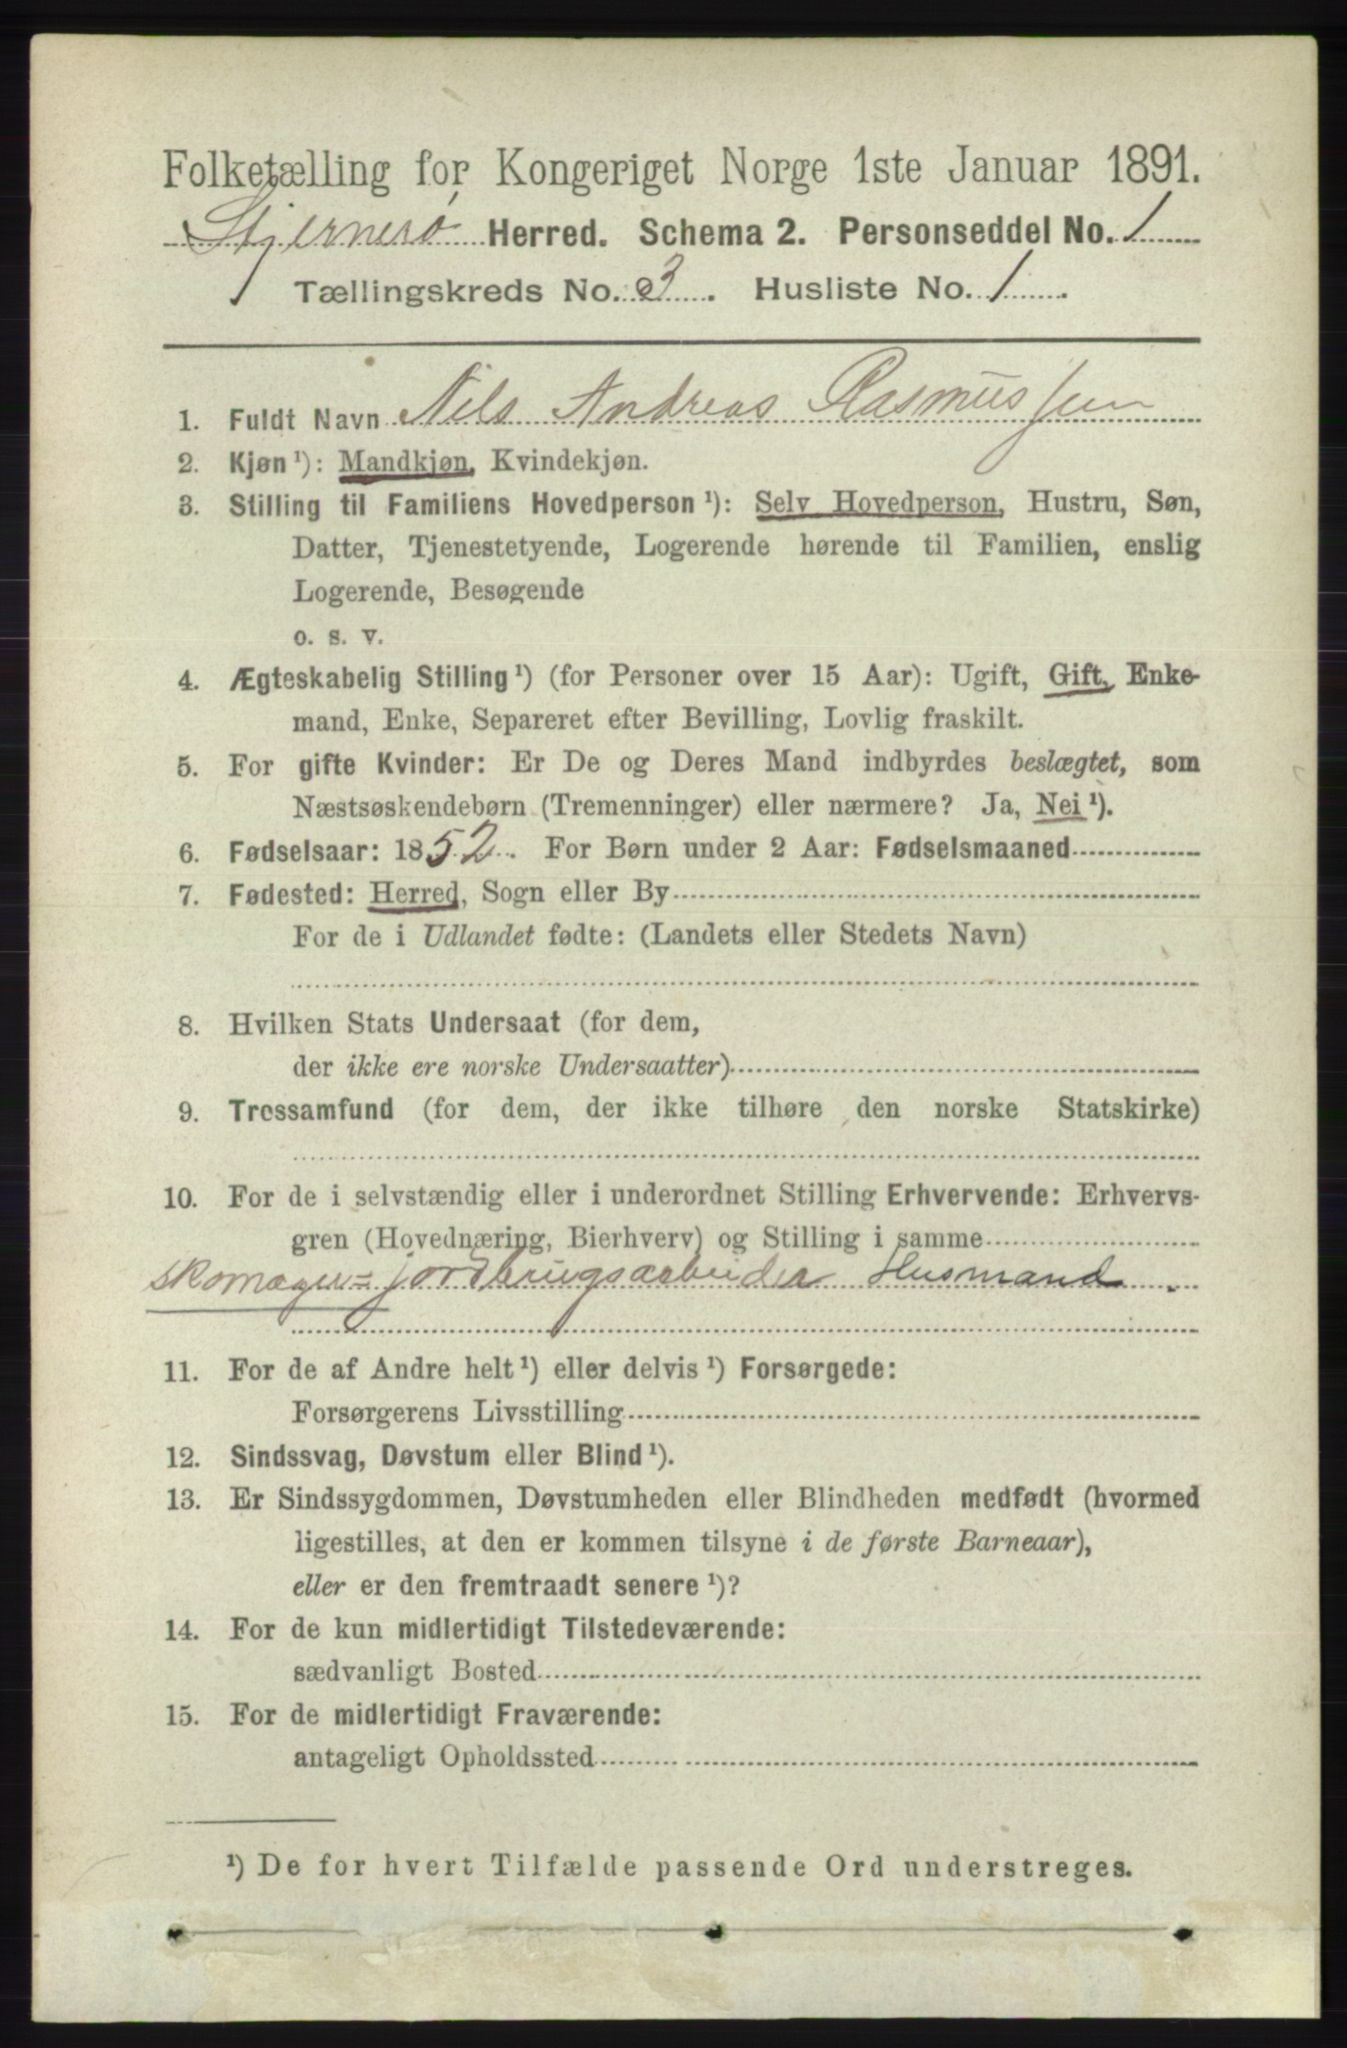 Folketælling for Kongeriget Norge 1ste Januar 1891.
Stjernerø Herred. Schema 2. Personseddel No. 1
Tællingskreds No. 3. Husliste No. 1.
1. Fuldt Navn Nils Andreas Rasmussen
2. Kjøn¹): Mandkjøn, Kvindekjøn.
3. Stilling til Familiens Hovedperson¹): Selv Hovedperson, Hustru, Søn,
Datter, Tjenestetyende, Logerende hørende til Familien, enslig
Logerende, Besøgende
o. s. v.
4. Ægteskabelig Stilling¹) (for Personer over 15 Aar): Ugift, Gift, Enke-
mand, Enke, Separeret efter Bevilling, Lovlig fraskilt.
5. For gifte Kvinder: Er De og Deres Mand indbyrdes beslægtet, som
Næstsøskendebørn (Tremenninger) eller nærmere? Ja, Nei¹).
6. Fødselsaar: 1852. For Børn under 2 Aar: Fødselsmaaned
7. Fødested: Herred, Sogn eller By
For de i Udlandet fødte: (Landets eller Stedets Navn)
8. Hvilken Stats Undersaat (for dem,
der ikke ere norske Undersaatter)
9. Trossamfund (for dem, der ikke tilhøre den norske Statskirke)
10. For de i selvstændig eller i underordnet Stilling Erhvervende: Erhvervs-
gren (Hovednæring, Bierhverv) og Stilling i samme
skomager= jordbrugsarbeider Husmand.
11. For de af Andre helt¹) eller delvis¹) Forsørgede:
Forsørgerens Livsstilling
12. Sindssvag, Døvstum eller Blind¹).
13. Er Sindssygdommen, Døvstumheden eller Blindheden medfødt (hvormed
ligestilles, at den er kommen tilsyne i de første Barneaar),
eller er den fremtraadt senere¹)?
14. For de kun midlertidigt Tilstedeværende:
sædvanligt Bosted
15. For de midlertidigt Fraværende:
antageligt Opholdssted
¹) De for hvert Tilfælde passende Ord understreges.